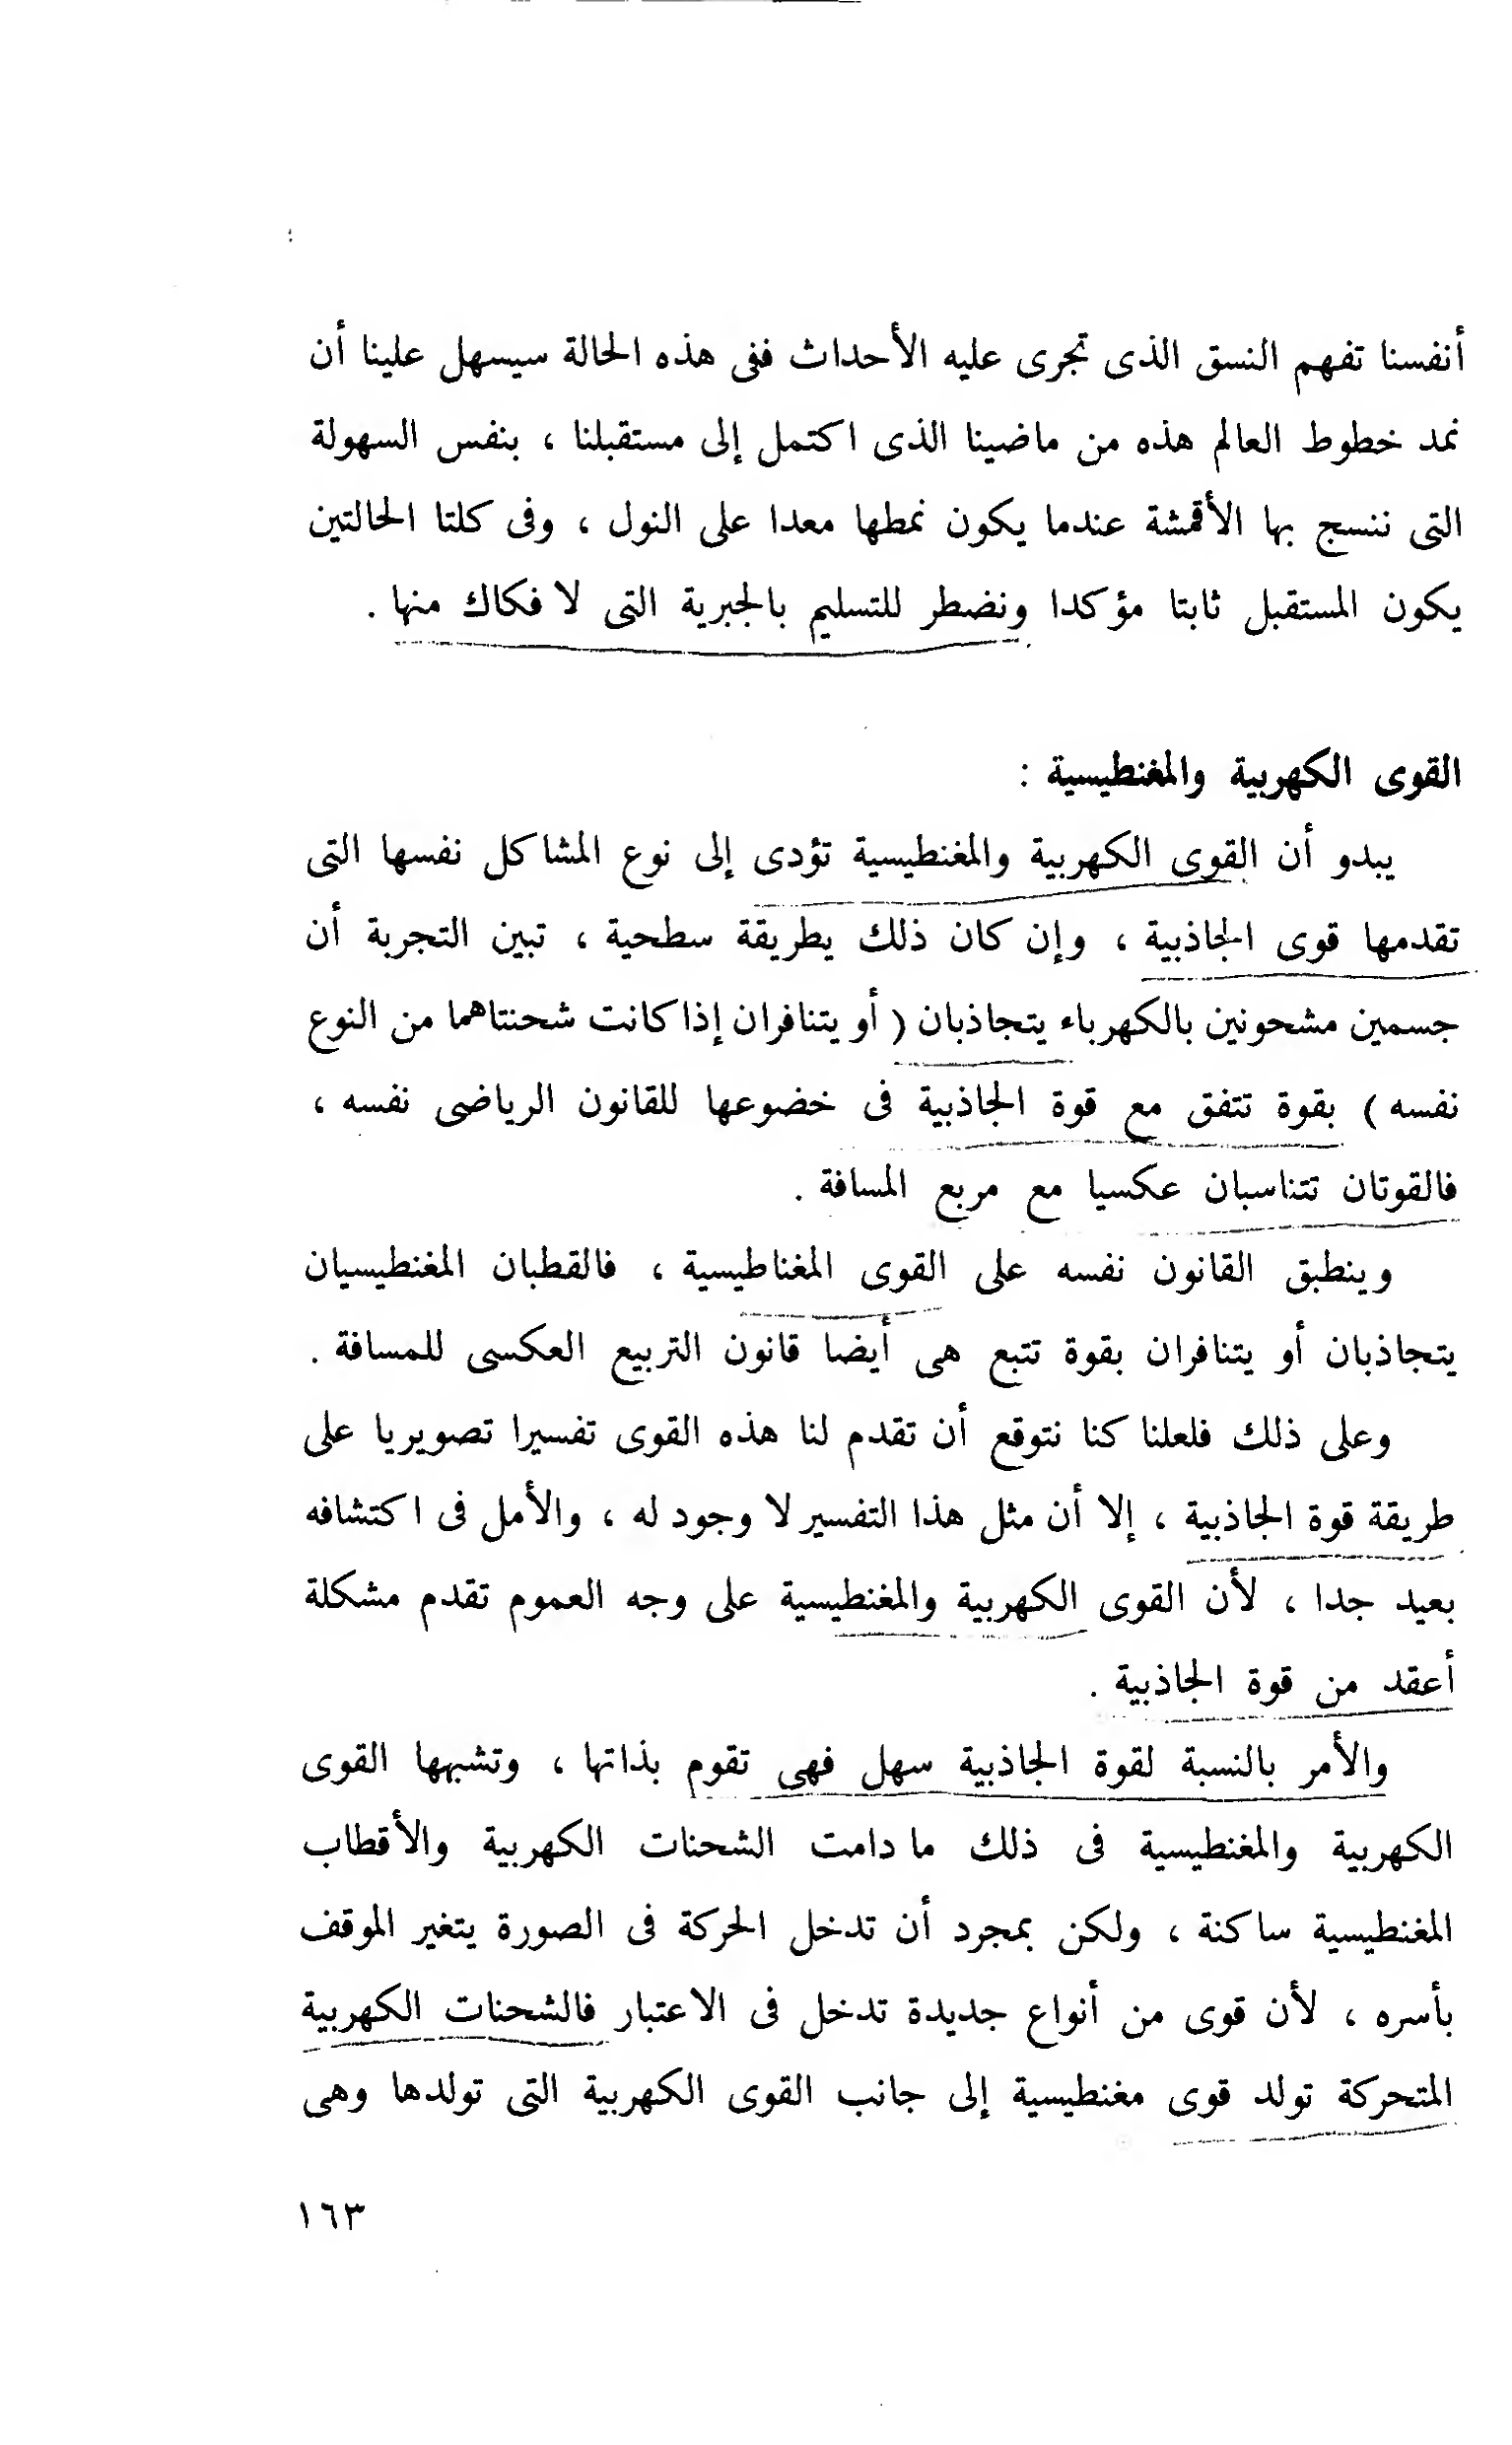 أنفسنا تفهم النسق الذى تجرى عليه الأحداث ففى هذه الحالة سيسهل علينا أن
نمد خطوط العالم هذه من ماضينا الذى اكتمل إلى مستقبلنا ، بنفس السهولة
التى ننسج بها الأقمشة عندما يكون نمطها معدا على النول ، وفى كلتا الحالتين
يكون المستقبل ثابتا مؤكدا ونضطر للتسليم بالجبرية التى لا فكاك منها .
القوى الكهربية والمغنطيسية :
يبدو أن القوى الكهربية والمغنطيسية تؤدى إلى نوع المشاكل نفسها التى
تقدمها قوى الجاذبية ، وإن كان ذلك يطريقة سطحية ، تبين التجربة أن
جسمين مشحونين بالكهرباء يتجاذبان ( أو يتنافران إذا كانت شحنتاهما من النوع
نفسه ) بقوة تتفق مع قوة الجاذبية فى خضوعها للقانون الرياضى نفسه ،
فالقوتان تتناسبان عكسيا مع مربع المسافة .
وينطبق القانون نفسه على القوى المغناطيسية ، فالقطبان المغنطيسيان
يتجاذبان أو يتنافران بقوة تتبع هى أيضا قانون التربيع العكسى للمسافة .
وعلى ذلك فلعلنا كنا نتوقع أن تقدم لنا هذه القوى تفسيرا تصويريا على
طريقة قوة الجاذبية ، إلا أن مثل هذا التفسير لا وجود له ، والأمل فى اكتشافه
بعيد جدا ، لأن القوى الكهربية والمغنطيسية على وجه العموم تقدم مشكلة
أعقد من قوة الجاذبية .
والأمر بالنسبة لقوة الجاذبية سهل فهى تقوم بذاتها ، وتشبهها القوى
الكهربية والمغنطيسية فى ذلك ما دامت الشحنات الكهربية والأقطاب
المغنطيسية ساكنة ، ولكن بمجرد أن تدخل الحركة فى الصورة يتغير الموقف
بأسره ، لأن قوى من أنواع جديدة تدخل فى الاعتبار فالشحنات الكهربية
المتحركة تولد قوى مغنطيسية إلى جانب القوى الكهربية التى تولدها وهى
١٦٣